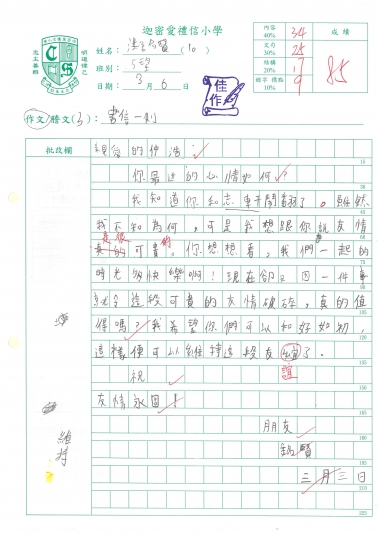 迦密愛禮信小學
明道律己
忠主善群
姓名：
班別：5望
日期：3月6日
佳作
內容 40% 34
文句 30% 25
結構 20% 17
錯字 標點 10% 9
成績
85
作文/謄文(3)：書信一則
批改欄
親愛的仲浩：
你最近的心情如何？
我知道你和志
我不知為何，可是我想跟你說友情
是很
真的可貴的，你想想看，我們一起的
時光多快樂啊！現在卻只因一件事
就令這段可貴的友情破碎，真的值
得嗎？我希望你們可以和好如初，
這樣便可以維持這段友
誼
了。
祝
友情永固！
朋友
維持
二月三日
15
30
45
60
75
90
105
120
135
150
165
180
195
210
225